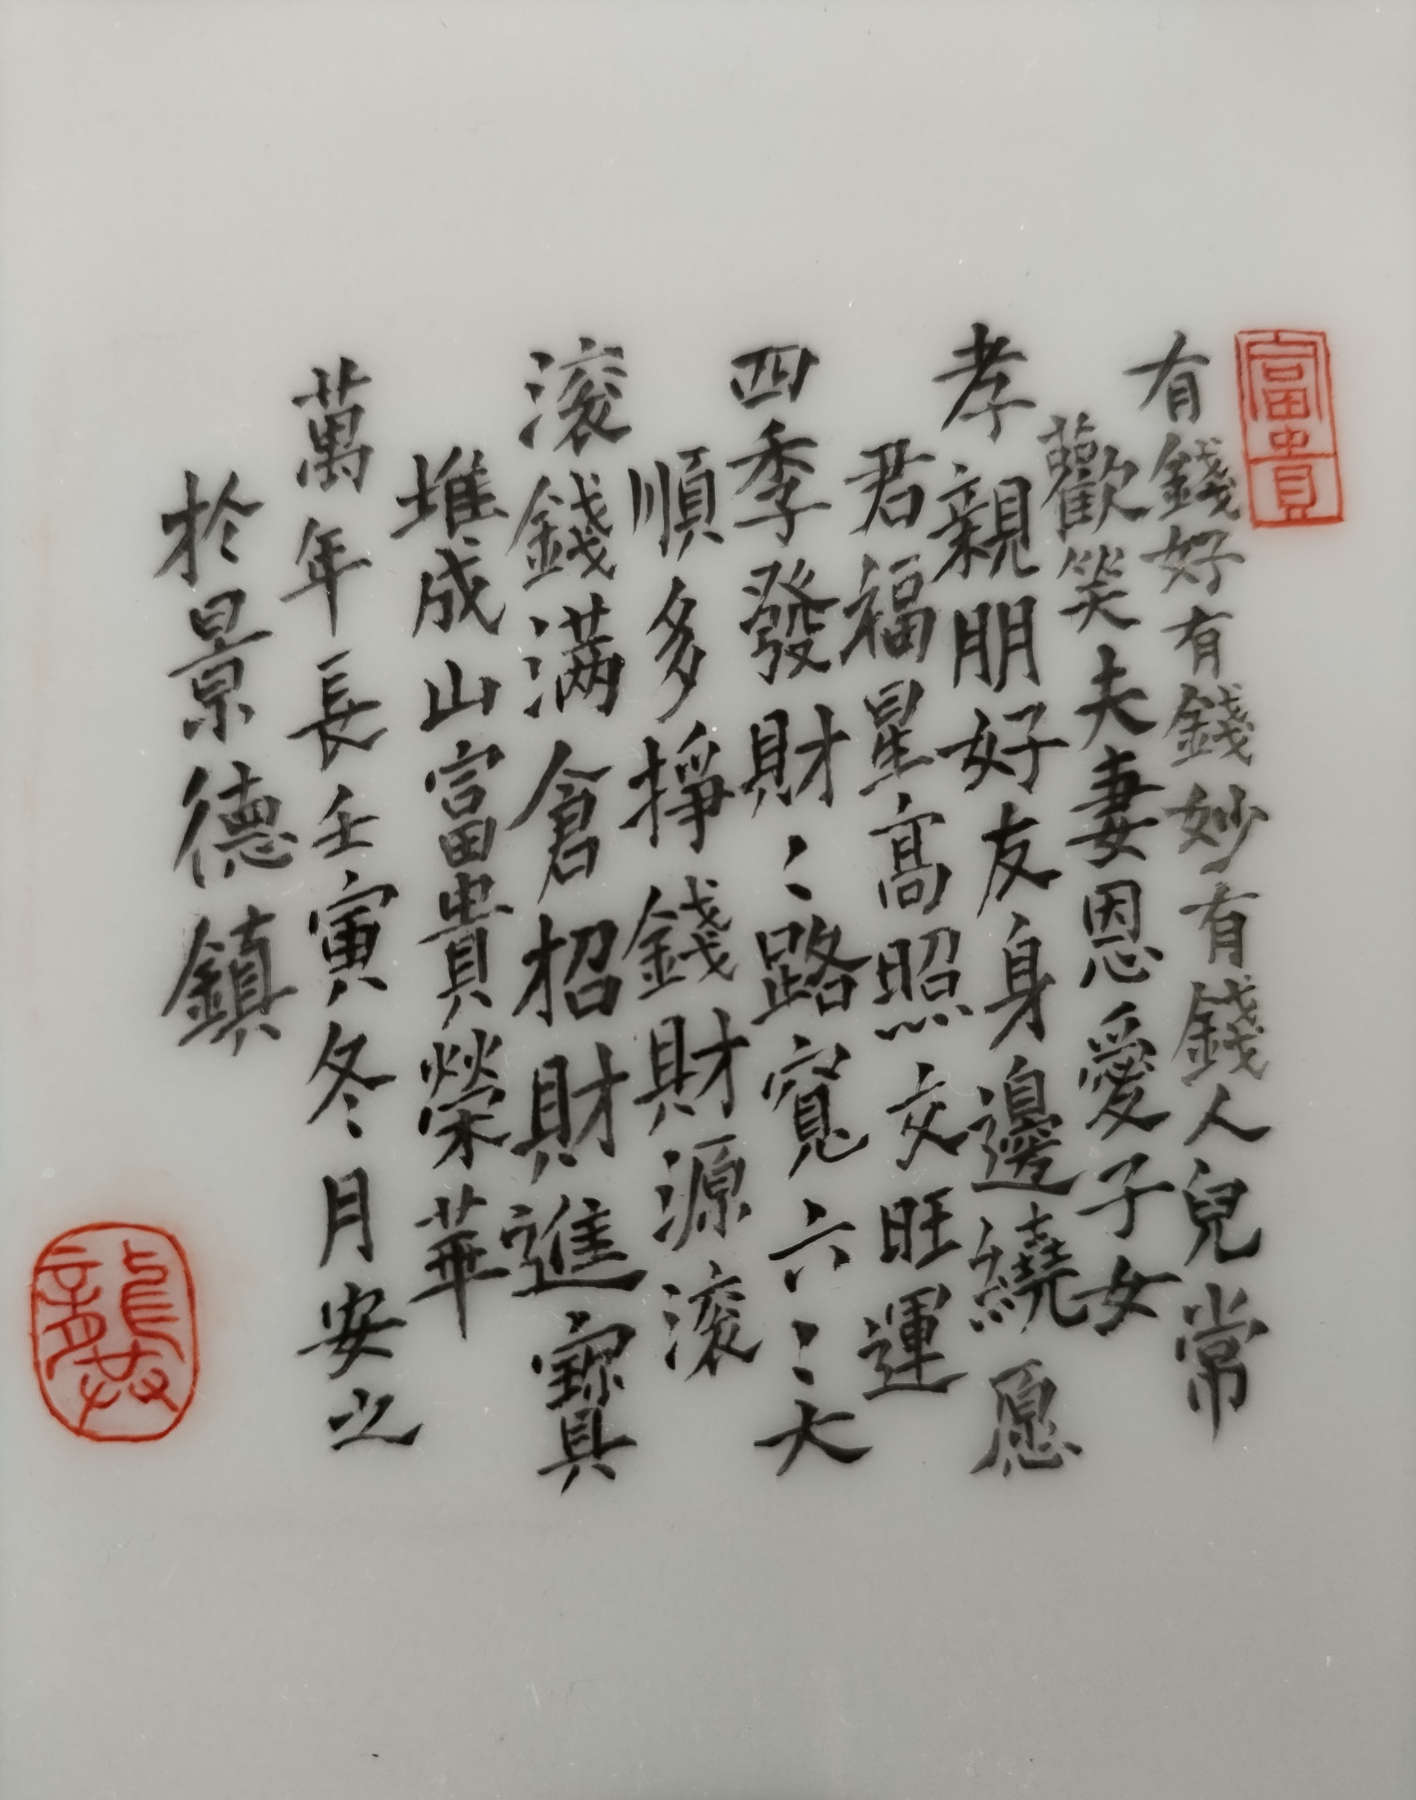 富貴
有錢好有錢妙有錢人兒常
歡笑夫妻恩愛子女
孝親朋好友身邊繞愿
君福星高照交旺運
四季發財ːː路寬六ːː大
順多掙錢財源滾
滾錢满倉招財進寶
堆成山富貴榮華
萬年長壬寅冬月安之
於景德鎮
龔